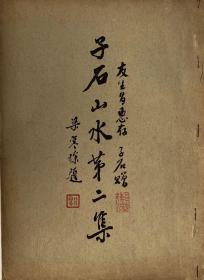 友生方惠存 子石贈
子石山水第二集
梁寒操題